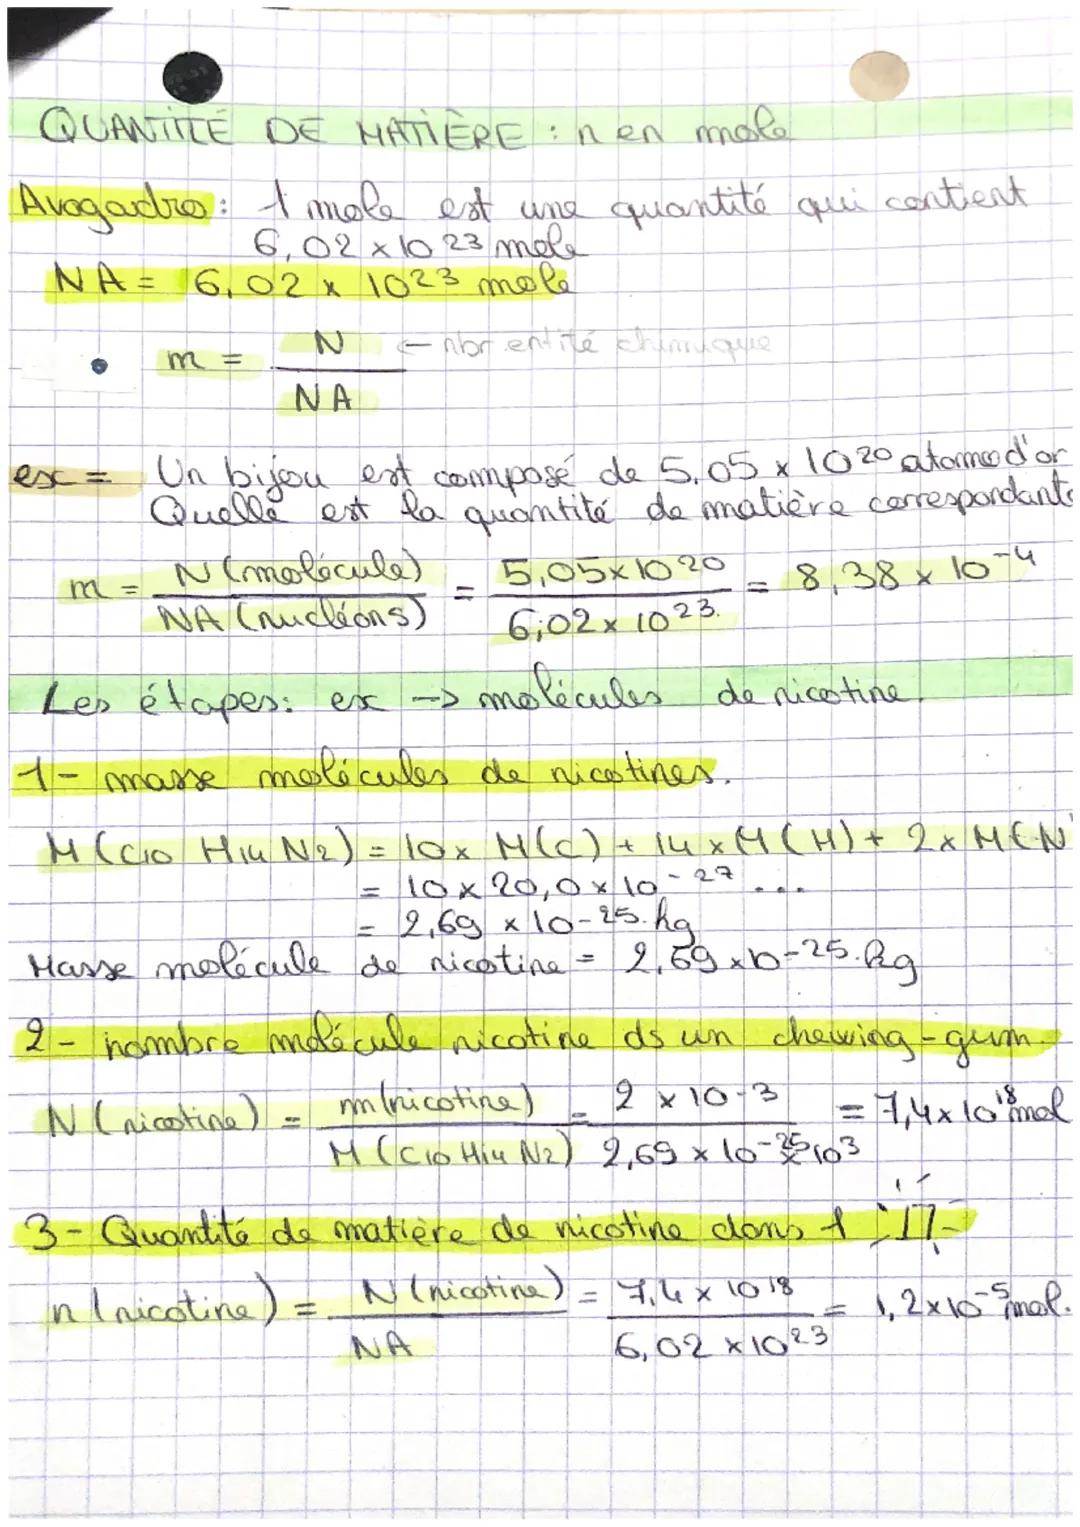 QUANTITÉ DE MATIÈRE : n en mole
Avogadro : 1 mole est une quantité qui contient
6,02 x 10 23 mole
NA = 6,02 x 10 23 mole
m = N / NA ← nbr entité chimique
ex = Un bijou est composé de 5,05 x 10 20 atome d'or
Quelle est la quantité de matière correspondante
m = N (molécule) / NA (nucléons) = 5,05 x 10 20 / 6,02 x 10 23. = 8,38 x 10 -4
Les étapes: ex -> molécules de nicotine.
1 - masse molécules de nicotines.
M (C10 H14 N2) = 10 x M(C) + 14 x M(H) + 2 x M(N
= 10 x 20,0 x 10 - 27 ...
= 2,69 x 10 - 25. kg
Masse molécule de nicotine = 2,69 x 10 - 25. kg
2 - nombre molécule nicotine ds un chewing-gum.
N (nicotine) = m(nicotine) / M (C10 H14 N2) = 2 x 10 -3 / 2,69 x 10 -25 x 10 3 = 7,4 x 10 18 mol
3 - Quantité de matière de nicotine dans 1
n (nicotine) = N (nicotine) / NA = 7,4 x 10 18 / 6,02 x 10 23 = 1,2 x 10 -5 mol.